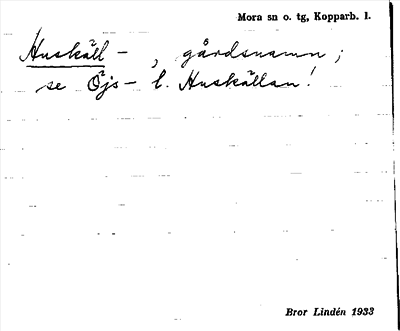 Mora sn o. tg, Kopparb. l.
Huskäll - , gårdsnamn ;
se Öjs- l. Huskällan!
Bror Lindén 1933